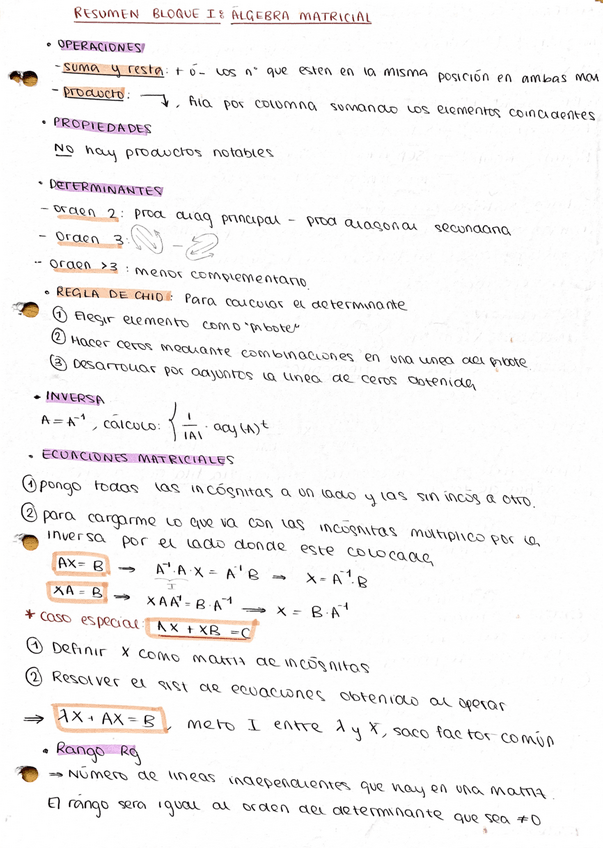 RESUMEN BLOQUE I: ÁLGEBRA MATRICIAL
• OPERACIONES
- suma y resta: + ó - los nº que esten en la misma posición en ambas mat
- producto: →, fila por columna sumando los elementos coincidentes
• PROPIEDADES
NO hay productos notables
• DETERMINANTES
- orden 2: prod diag principal - prod diagonal secundaria
- orden 3: -
- orden >3: menor complementario.
• REGLA DE CHIO: Para calcular el determinante
① Elegir elemento como "pibote"
② Hacer ceros mediante combinaciones en una linea del pibote
③ Desarrollar por adjuntos la linea de ceros obtenida
• INVERSA
A = A⁻¹, cálculo: { 1/|A| · adj(A)ᵗ
• ECUACIONES MATRICIALES
① pongo todas las incógnitas a un lado y las sin incóg a otro.
② para cargarme lo que va con las incógnitas multiplico por la
inversa por el lado donde este colocada
AX = B → A⁻¹·A·X = A⁻¹B → X = A⁻¹·B
I
XA = B → XAA⁻¹ = B·A⁻¹ → X = B·A⁻¹
* caso especial: AX + XB = C
① Definir X como matriz de incógnitas
② Resolver el sist de ecuaciones obtenido al operar
⇒ λX + AX = B, meto I entre λ y X, saco factor común
• Rango Rg
→ Número de lineas independientes que hay en una matriz.
El rango sera igual al orden del determinante que sea ≠0